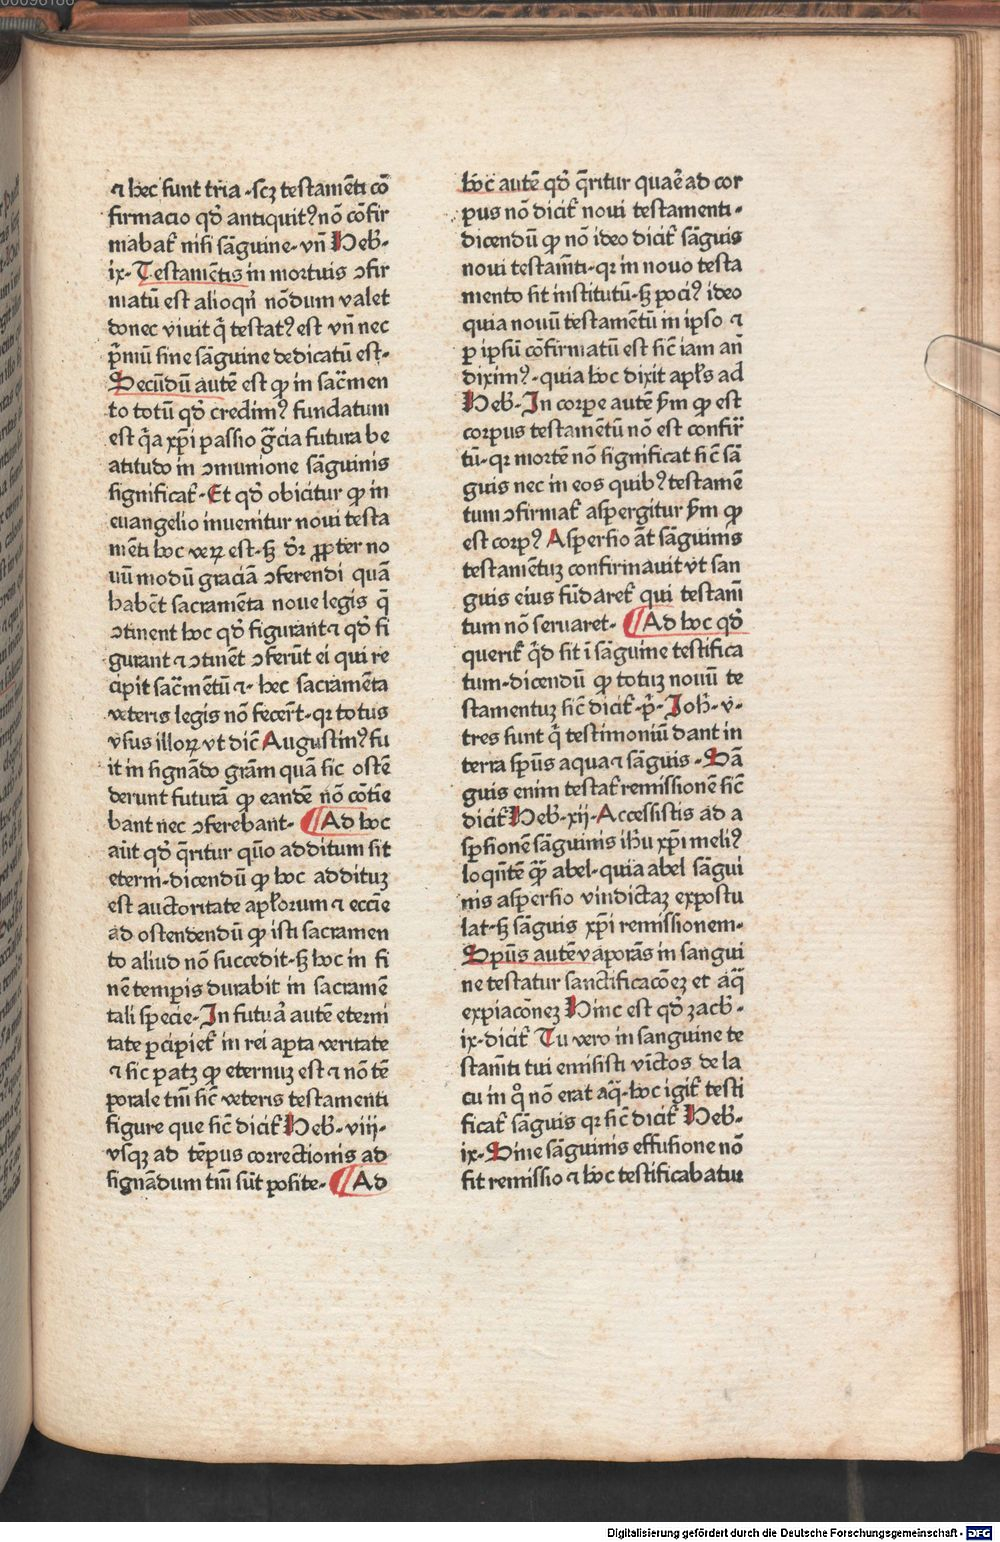 ⁊ hec sunt tria · scꝫ testamēti cō
firmacio qd̄ antiquitꝰ nō cōfir
mabat᷑ nisi sāguine · vn̄ Heb̄ ·
ix · Testamētis in mortuis ↄfir
matū est alioqn̄ nōdum valet
donec viuit q̄ testatꝰ est vn̄ nec
p̄miū sine sāguine dedicatū est ·
Secūdū autē est ꝙ in sac̄men
to totū qd̄ credimꝰ fundatum
est q̄a xp̄i passio gr̄cia futura be
atitudo in ↄmunione sāguinis
significat᷑ · Et qd̄ obicitur ꝙ in
euangelio inuenitur noui testa
mēti hoc veꝝ est · sꝫ dr̄ ꝓpter no
uū modū graciā ↄferendi quā
habēt sacramēta noue legis q̄
ↄtinent hoc qd̄ figurant ⁊ qd̄ fi
gurant ⁊ ↄtinēt ↄferūt ei qui re
cipit sac̄mētū ⁊ · hec sacramēta
veteris legis nō fecer̄t · qꝛ totus
vsus illoꝝ vt dic̄ Augustinꝰ fu
it in signādo grām quā sic ostē
derunt futurā ꝙ eandē nō cōtie
bant nec ↄferebant · ¶ Ad hoc
aūt qd̄ q̄ritur quō additum sit
eterni · dicendū ꝙ hoc "addituꝫ
est auctoritate apl̄orum ⁊ eccīe
ad ostendendū ꝙ isti sacramen
to aliud nō succedit · sꝫ hoc in fi
nē temꝑis durabit in sacramē
tali specie · In futuā autē eterni
tate ꝑcipiet᷑ in rei aꝑta veritate
⁊ sic patꝫ ꝙ eternuꝫ est ⁊ nō tē
porale tm̄ sic̄ veteris testamenti
figure que sic̄ dicit᷑ Heb̄ · viii ·
vsqꝫ ad tēpus correctionis ad
signādum tm̄ sūt posite · ¶ Ad
hoc autē qd̄ q̄ritur quaē ad cor
pus nō dicit᷑ noui testamenti ·
dicendū ꝙ nō ideo dicit᷑ sāguis
noui testam̄ti · qꝛ in nouo testa
mento sit institutū · sꝫ pociꝰ ideo
quia nouū testamētū in ipso ⁊
ꝑ ipsū cōfirmatū est sic̄ iam an̄
diximꝰ · quia hoc dixit apl̄s ad
Heb̄ · In corꝑe autē v̄m ꝙ est
corpus testamētū nō est confir̄
tū · qꝛ mortē nō significat sic̄ sā
guis nec in eos quibꝰ testamē
tum ↄfirmat᷑ aspergitur v̄m ꝙ
est corpꝰ Aspersio āt sāguinis
testamētuꝫ confirmauit vt san
guis eius fūdaret᷑ qui testam̄
tum nō seruaret · ¶ Ad hoc qd̄
querit᷑ q̄d sit ī sāguine testifica
tum · dicendū ꝙ totuꝫ nouū te
stamentuꝫ sic̄ dicit᷑ · p̄ · Ioh̄ · v ·
tres sunt q̄ testimoniū dant in
terra sp̄us aqua ⁊ sāguis · Sā
guis enim testat᷑ remissionē sic̄
dicit᷑ Heb̄ · xij · Accessistis ad a
spersionē sāguinis ih̄u xp̄i meliꝰ
loqn̄tē q̄ꝫ abel · quia abel sāgui
nis aspersio vindictaꝫ expostu
lat · sꝫ sāguis xp̄i remissionem ·
Sp̄us autē vaporās in sangui
ne testatur sanctificacōeꝫ et aq̄
expiacōnez Hinc est qd̄ zach̄ ·
ix · dicit᷑ Tu vero in sanguine te
stam̄ti tui emisisti vīctos de la
cu in q° nō erat aq̄ · hoc igit᷑ testi
ficat᷑ sāguis qꝛ sic̄ dicit᷑ Heb̄ ·
ix · Sine sāguinis effusione nō
fit remissio ⁊ hoc testificabatur
Digitalisierung gefördert durch die Deutsche Forschungsgemeinschaft - DFG